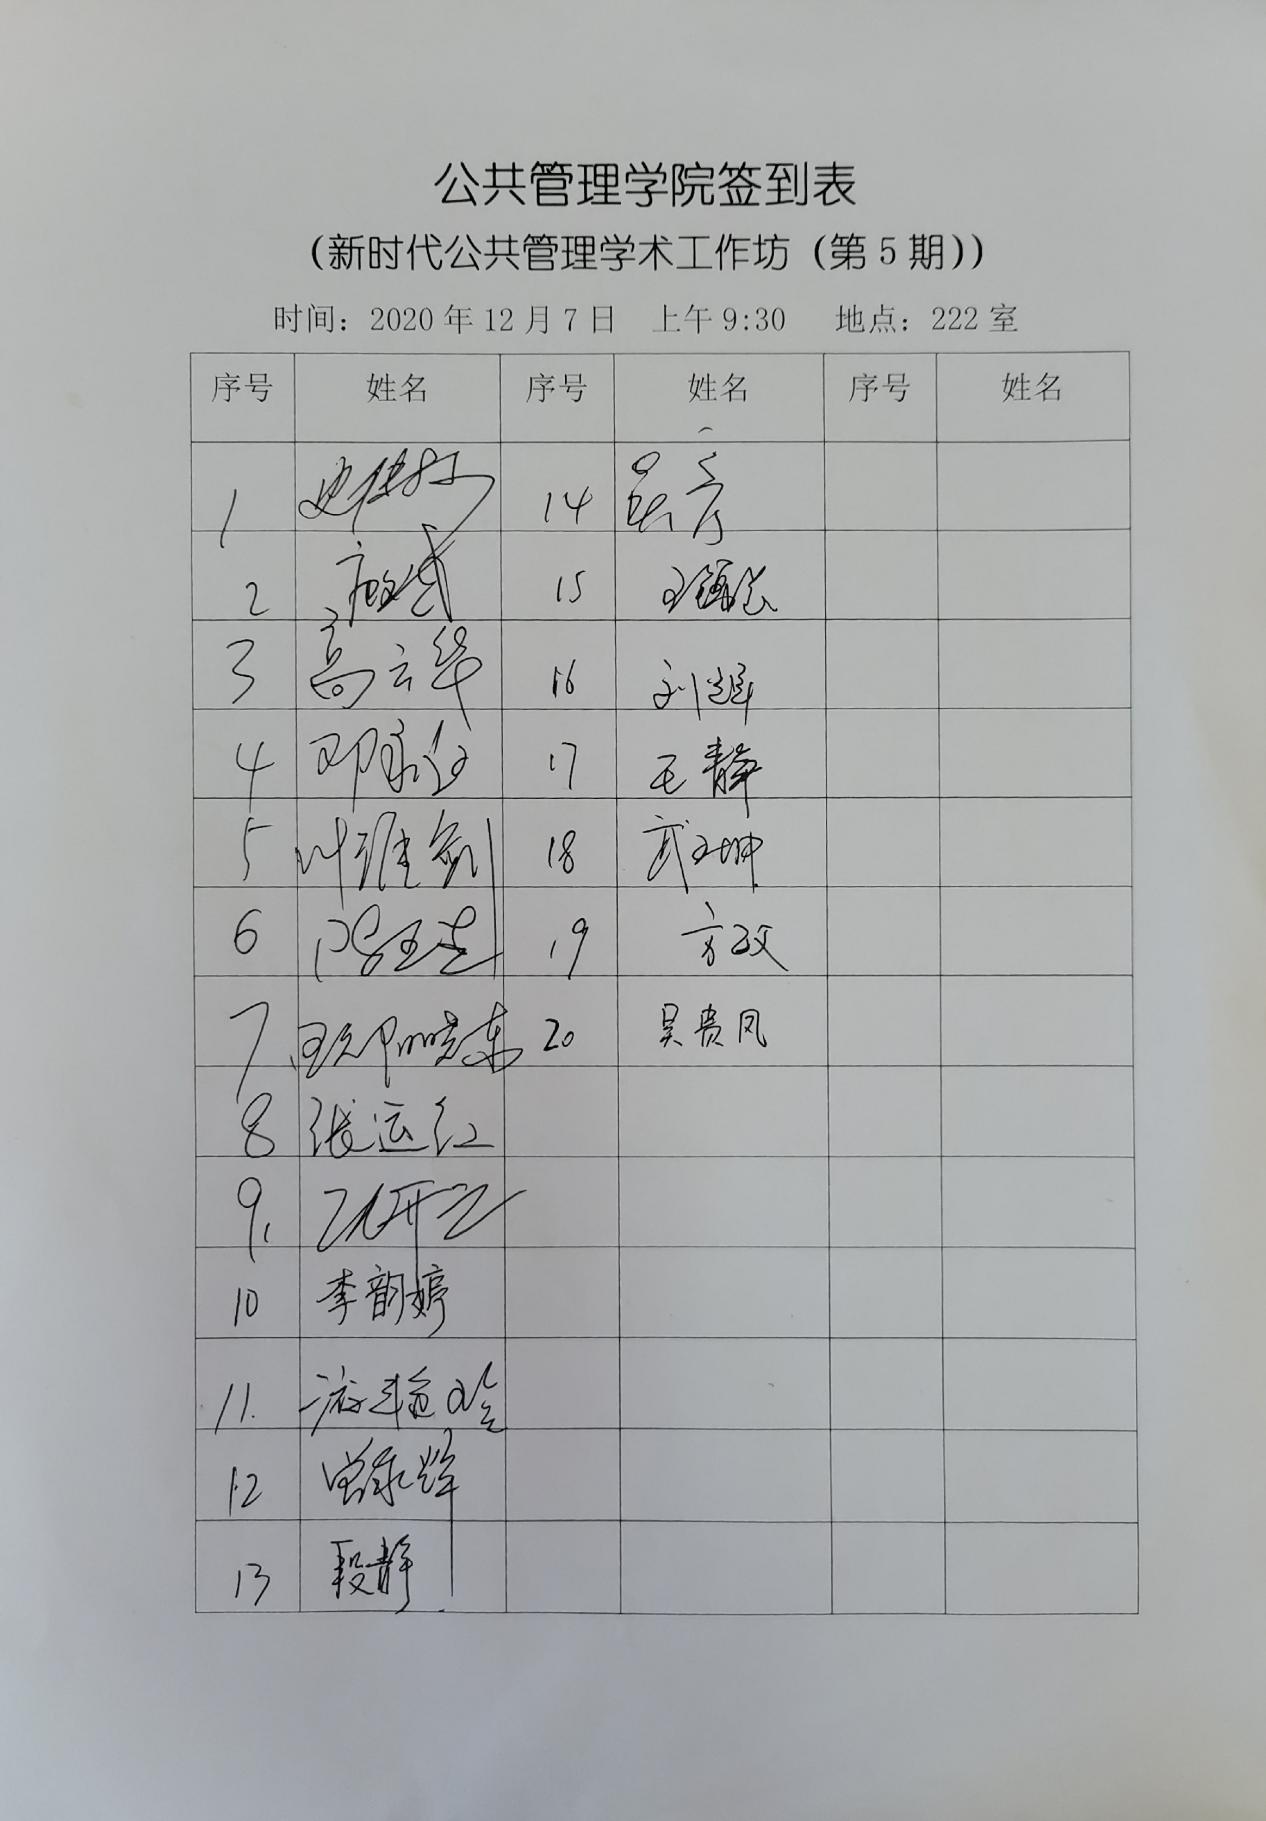 公共管理学院签到表
（新时代公共管理学术工作坊（第5期））
时间：2020年12月7日 上午9:30 地点：222室
序号 姓名 序号 姓名 序号 姓名
1 14 吴彦
2 15
3 高云华 16 刘
4 邓 17 王静
5 叶维剑 18 武玉坤
6 19 方政
7 欧阳晓东 20 吴贵凤
8 张运红
9.
10 李韵婷
11. 游艳玲
12 曾永辉
13 段静